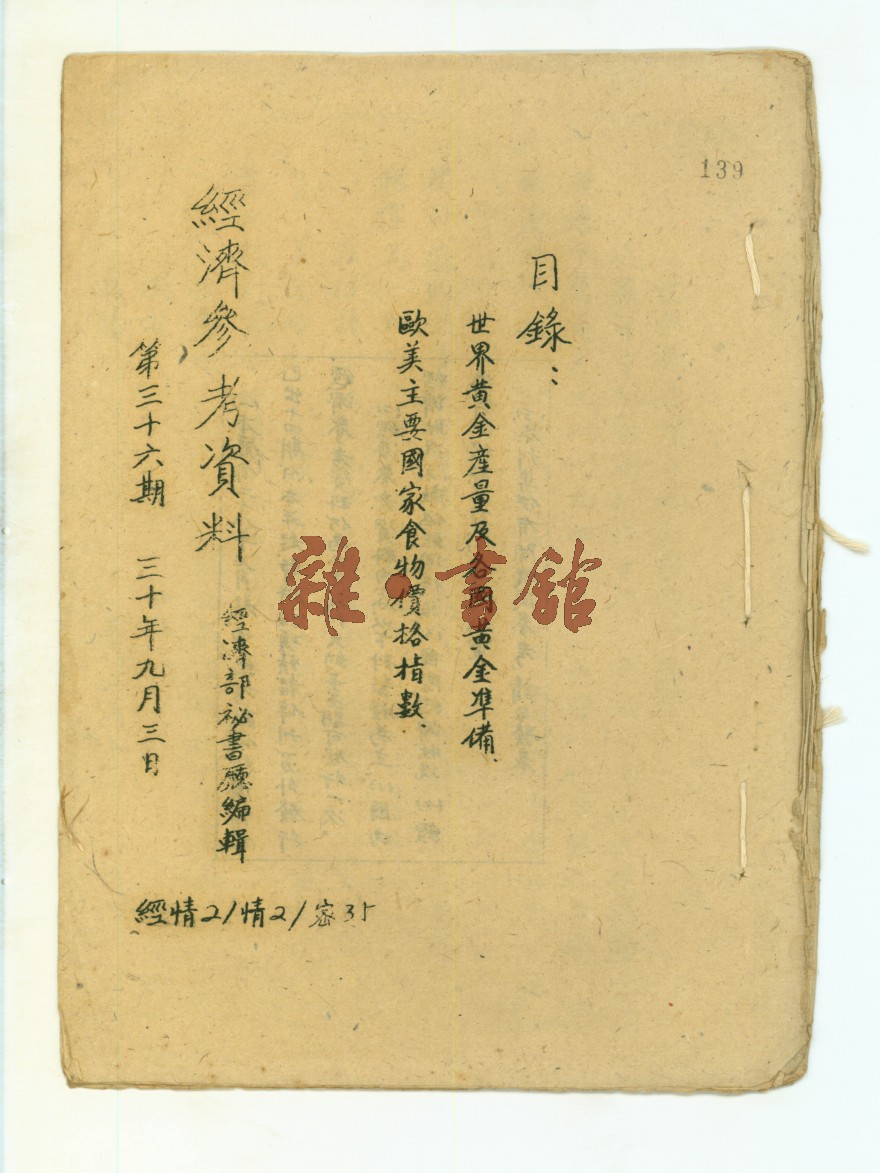 139
目錄：
世界黃金產量及各國黃金準備.
歐美主要國家食物價格指數.
經濟參考資料
經濟部祕書廳編輯
第三十六期 三十年九月三日
經情2/情2/密35
雜·書館